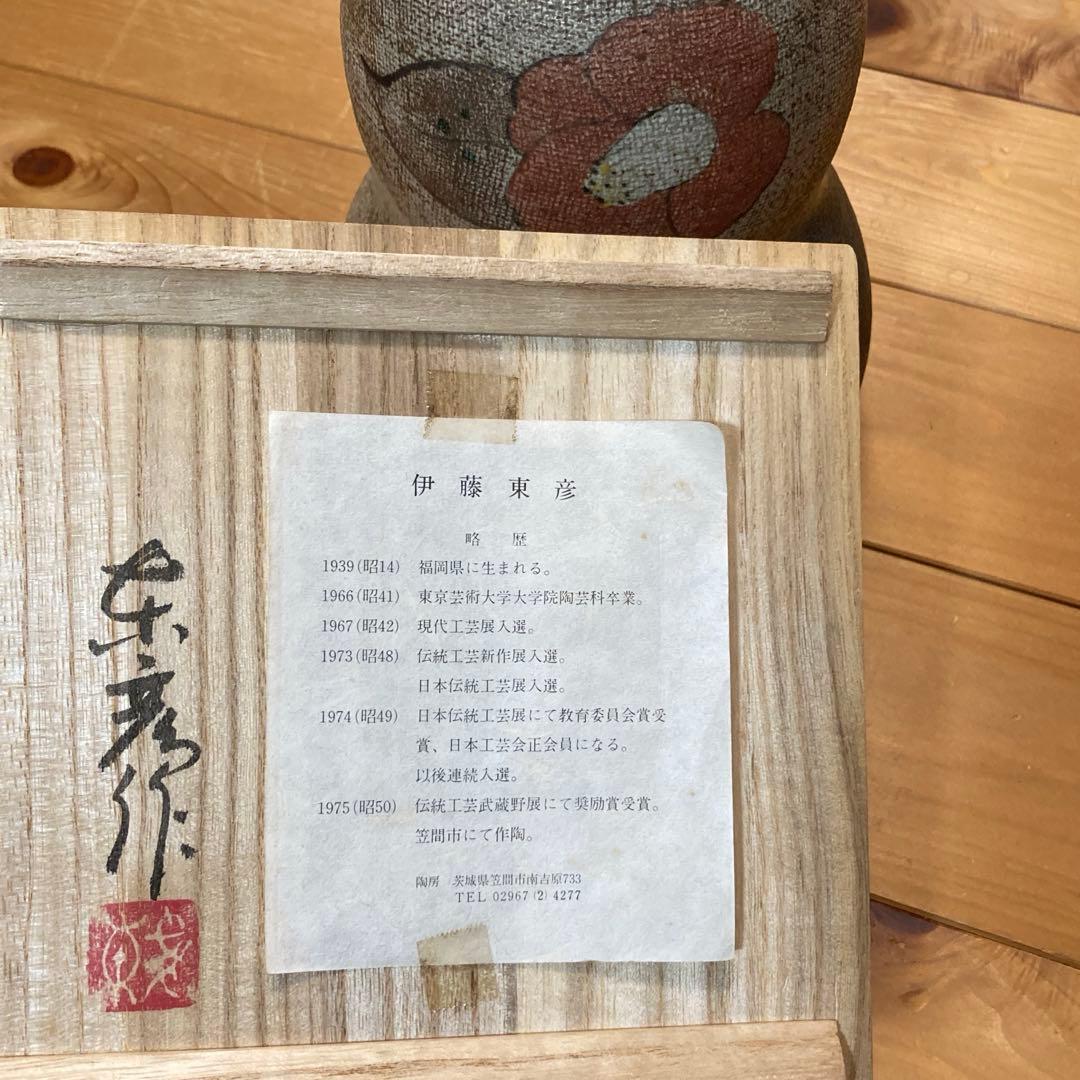 伊藤東彦
略歴
1939(昭14) 福岡県に生まれる。
1966(昭41) 東京芸術大学大学院陶芸科卒業。
1967(昭42) 現代工芸展入選。
1973(昭48) 伝統工芸新作展入選。
日本伝統工芸展入選。
1974(昭49) 日本伝統工芸展にて教育委員会賞受
賞、日本工芸会正会員になる。
以後連続入選。
1975(昭50) 伝統工芸武蔵野展にて奨励賞受賞。
笠間市にて作陶。
陶房 茨城県笠間市南吉原733
TEL 02967(2)4277
東彦作